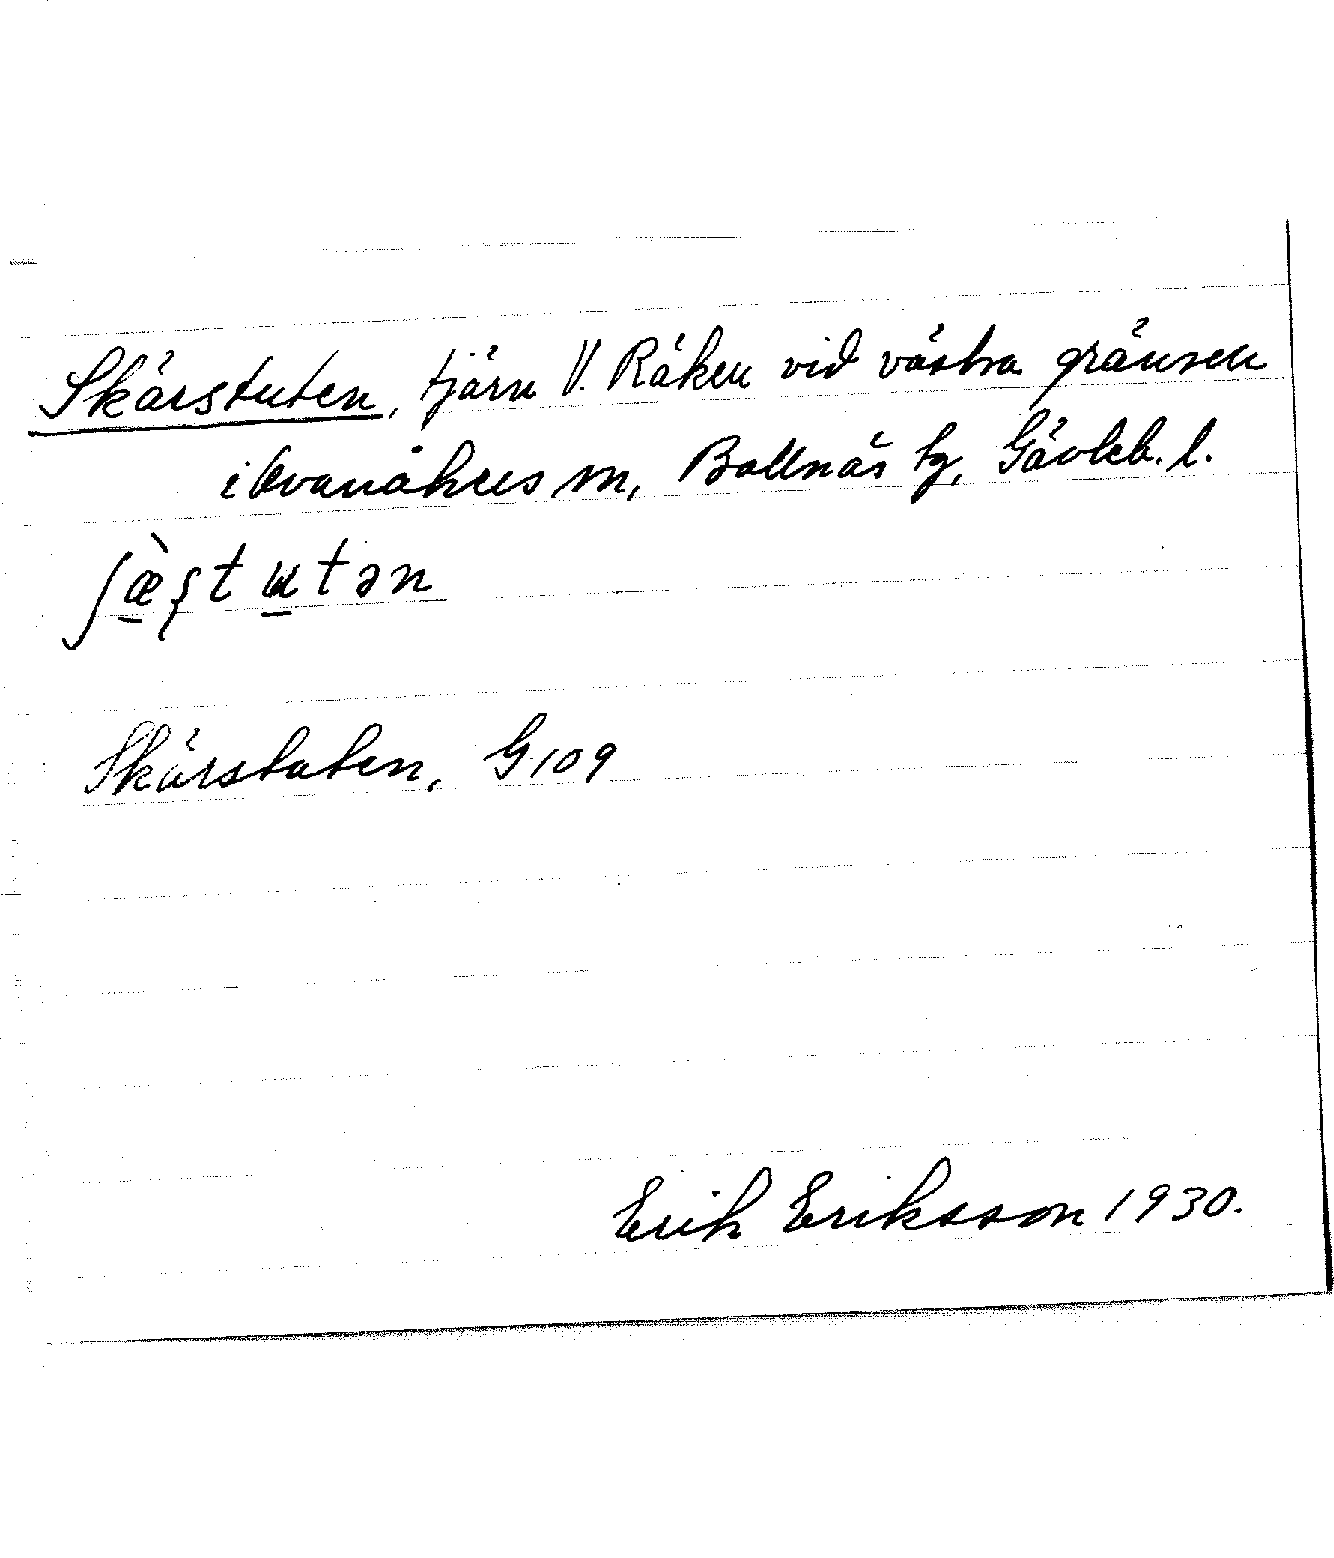 Skärstuten, tjärn V. Räken vid västra gränsen
i Svanåhus sn, Bollnäs tg, Gävleb. l.
ʃæ̀ʂtʉtən
Skärstuten, G109
Erik Eriksson 1930.